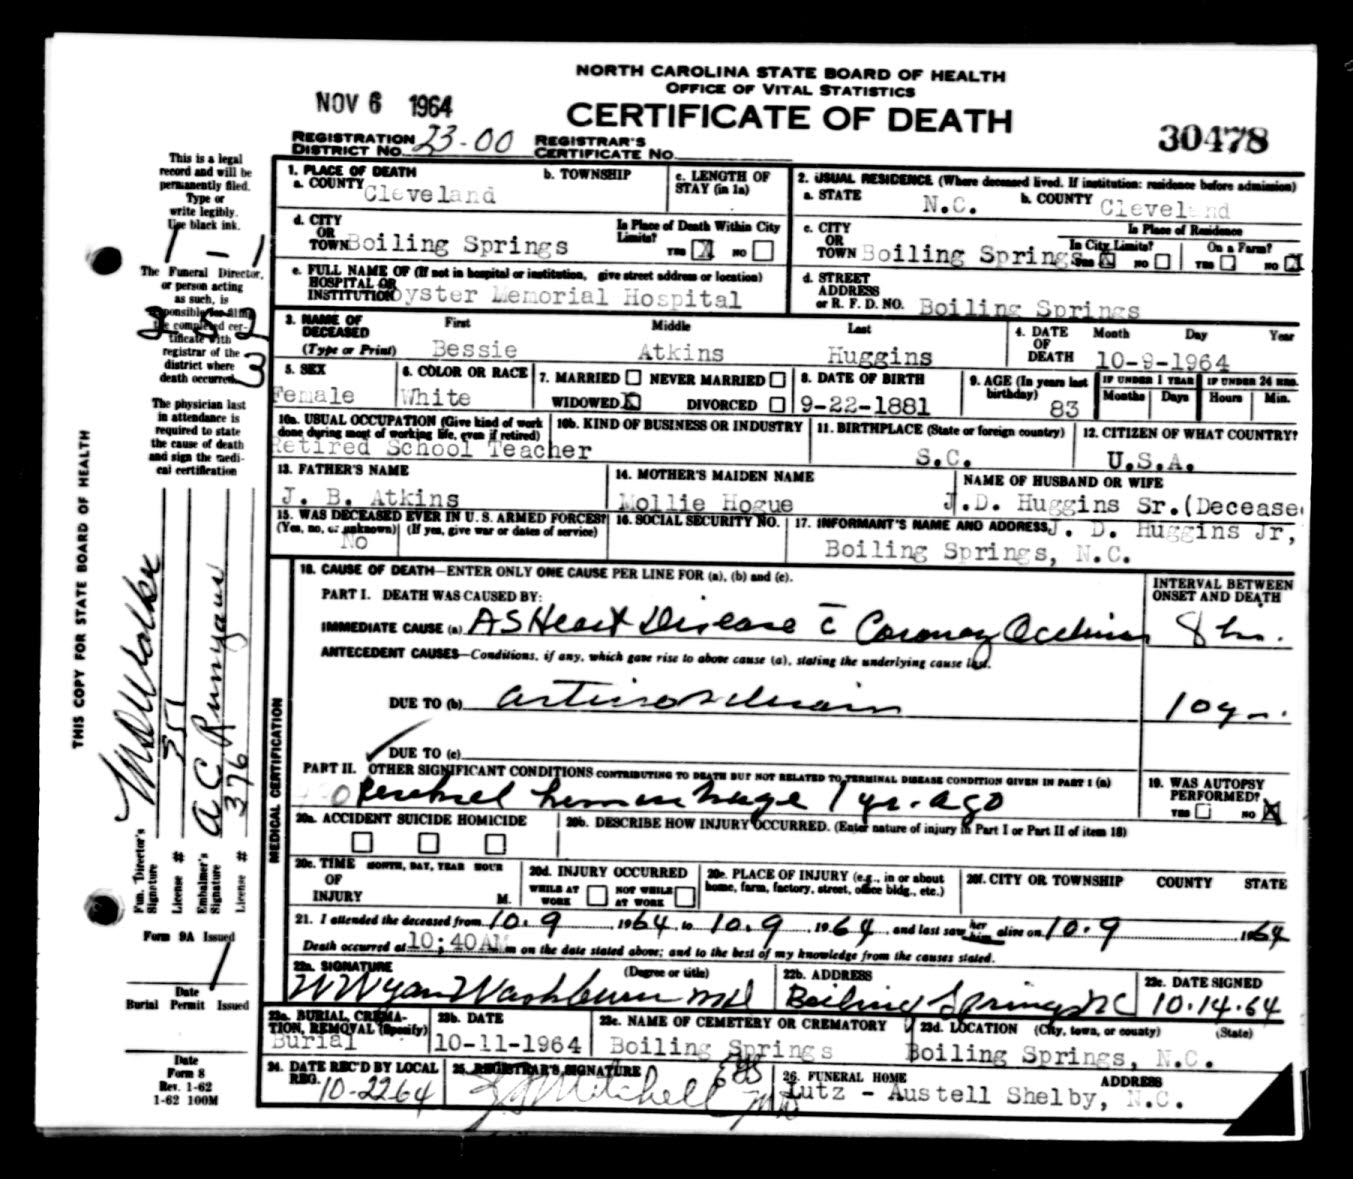 NORTH CAROLINA STATE BOARD OF HEALTH
OFFICE OF VITAL STATISTICS
NOV 6 1964
CERTIFICATE OF DEATH
30478
REGISTRATION DISTRICT NO. 23-00 REGISTRAR'S CERTIFICATE NO.
This is a legal
record and will be
permanently filed.
Type or
write legibly.
Use black ink.
1 - 1
The Funeral Director,
or person acting
as such, is
responsible for filing
the completed cer-
tificate with
registrar of the
district where
death occurred.
The physician last
in attendance is
required to state
the cause of death
and sign the medi-
cal certification
THIS COPY FOR STATE BOARD OF HEALTH
Fun. Director's Signature
License # 351
Embalmer's Signature A C Runyans
License # 376
Form 9A Issued
Date
Burial Permit Issued
Date
Form 8
Rev. 1-62
1-62 100M
1. PLACE OF DEATH
a. COUNTY Cleveland
b. TOWNSHIP
c. LENGTH OF STAY (in 1a)
2. USUAL RESIDENCE (Where deceased lived. If institution: residence before admission)
a. STATE N.C.
b. COUNTY Cleveland
d. CITY OR TOWN Boiling Springs
Is Place of Death Within City Limits? YES X NO
c. CITY OR TOWN Boiling Springs
Is Place of Residence
In City Limits? YES X NO
On a Farm? YES NO X
e. FULL NAME OF (If not in hospital or institution, give street address or location) HOSPITAL OR INSTITUTION oyster Memorial Hospital
d. STREET ADDRESS or R. F. D. NO. Boiling Springs
3. NAME OF DECEASED (Type or Print)
First Bessie
Middle Atkins
Last Huggins
4. DATE OF DEATH Month Day Year 10-9-1964
5. SEX Female
6. COLOR OR RACE White
7. MARRIED NEVER MARRIED
WIDOWED X DIVORCED
8. DATE OF BIRTH 9-22-1881
9. AGE (In years last birthday) 83
IF UNDER 1 YEAR Months Days
IF UNDER 24 HRS. Hours Min.
10a. USUAL OCCUPATION (Give kind of work done during most of working life, even if retired) Retired School Teacher
10b. KIND OF BUSINESS OR INDUSTRY
11. BIRTHPLACE (State or foreign country) S.C.
12. CITIZEN OF WHAT COUNTRY? U.S.A.
13. FATHER'S NAME J. B. Atkins
14. MOTHER'S MAIDEN NAME Mollie Hogue
NAME OF HUSBAND OR WIFE J.D. Huggins Sr.(Decease
15. WAS DECEASED EVER IN U. S. ARMED FORCES? (Yes, no, or unknown) (If yes, give war or dates of service) No
16. SOCIAL SECURITY NO.
17. INFORMANT'S NAME AND ADDRESS J. D. Huggins Jr,
Boiling Springs, N.C.
MEDICAL CERTIFICATION
18. CAUSE OF DEATH—ENTER ONLY ONE CAUSE PER LINE FOR (a), (b) and (c).
INTERVAL BETWEEN ONSET AND DEATH
PART I. DEATH WAS CAUSED BY:
IMMEDIATE CAUSE (a) AS Heart Disease c̄ Coronary Occlusion 8 hr.
ANTECEDENT CAUSES—Conditions, if any, which gave rise to above cause (a), stating the underlying cause last.
DUE TO (b) arteriosclerosis 10 yr.
DUE TO (c)
PART II. OTHER SIGNIFICANT CONDITIONS CONTRIBUTING TO DEATH BUT NOT RELATED TO TERMINAL DISEASE CONDITION GIVEN IN PART I (a)
Cerebral hemorrhage 1 yr. ago
19. WAS AUTOPSY PERFORMED? YES NO X
20a. ACCIDENT SUICIDE HOMICIDE
20b. DESCRIBE HOW INJURY OCCURRED. (Enter nature of injury in Part I or Part II of item 18)
20c. TIME OF INJURY MONTH, DAY, YEAR HOUR M.
20d. INJURY OCCURRED WHILE AT WORK NOT WHILE AT WORK
20e. PLACE OF INJURY (e.g., in or about home, farm, factory, street, office bldg., etc.)
20f. CITY OR TOWNSHIP COUNTY STATE
21. I attended the deceased from 10.9, 1964 to 10.9, 1964, and last saw her him alive on 10.9 1964
Death occurred at 10;40AM m on the date stated above; and to the best of my knowledge from the causes stated.
22a. SIGNATURE (Degree or title) W Wyan Washburn MD
22b. ADDRESS Boiling Springs NC
22c. DATE SIGNED 10.14.64
23a. BURIAL, CREMATION, REMOVAL (Specify) Burial
23b. DATE 10-11-1964
23c. NAME OF CEMETERY OR CREMATORY Boiling Springs
23d. LOCATION (City, town, or county) (State) Boiling Springs, N.C.
24. DATE REC'D BY LOCAL REG. 10-22 64
25. REGISTRAR'S SIGNATURE Mitchell MD
26. FUNERAL HOME ADDRESS Lutz - Austell Shelby, N.C.